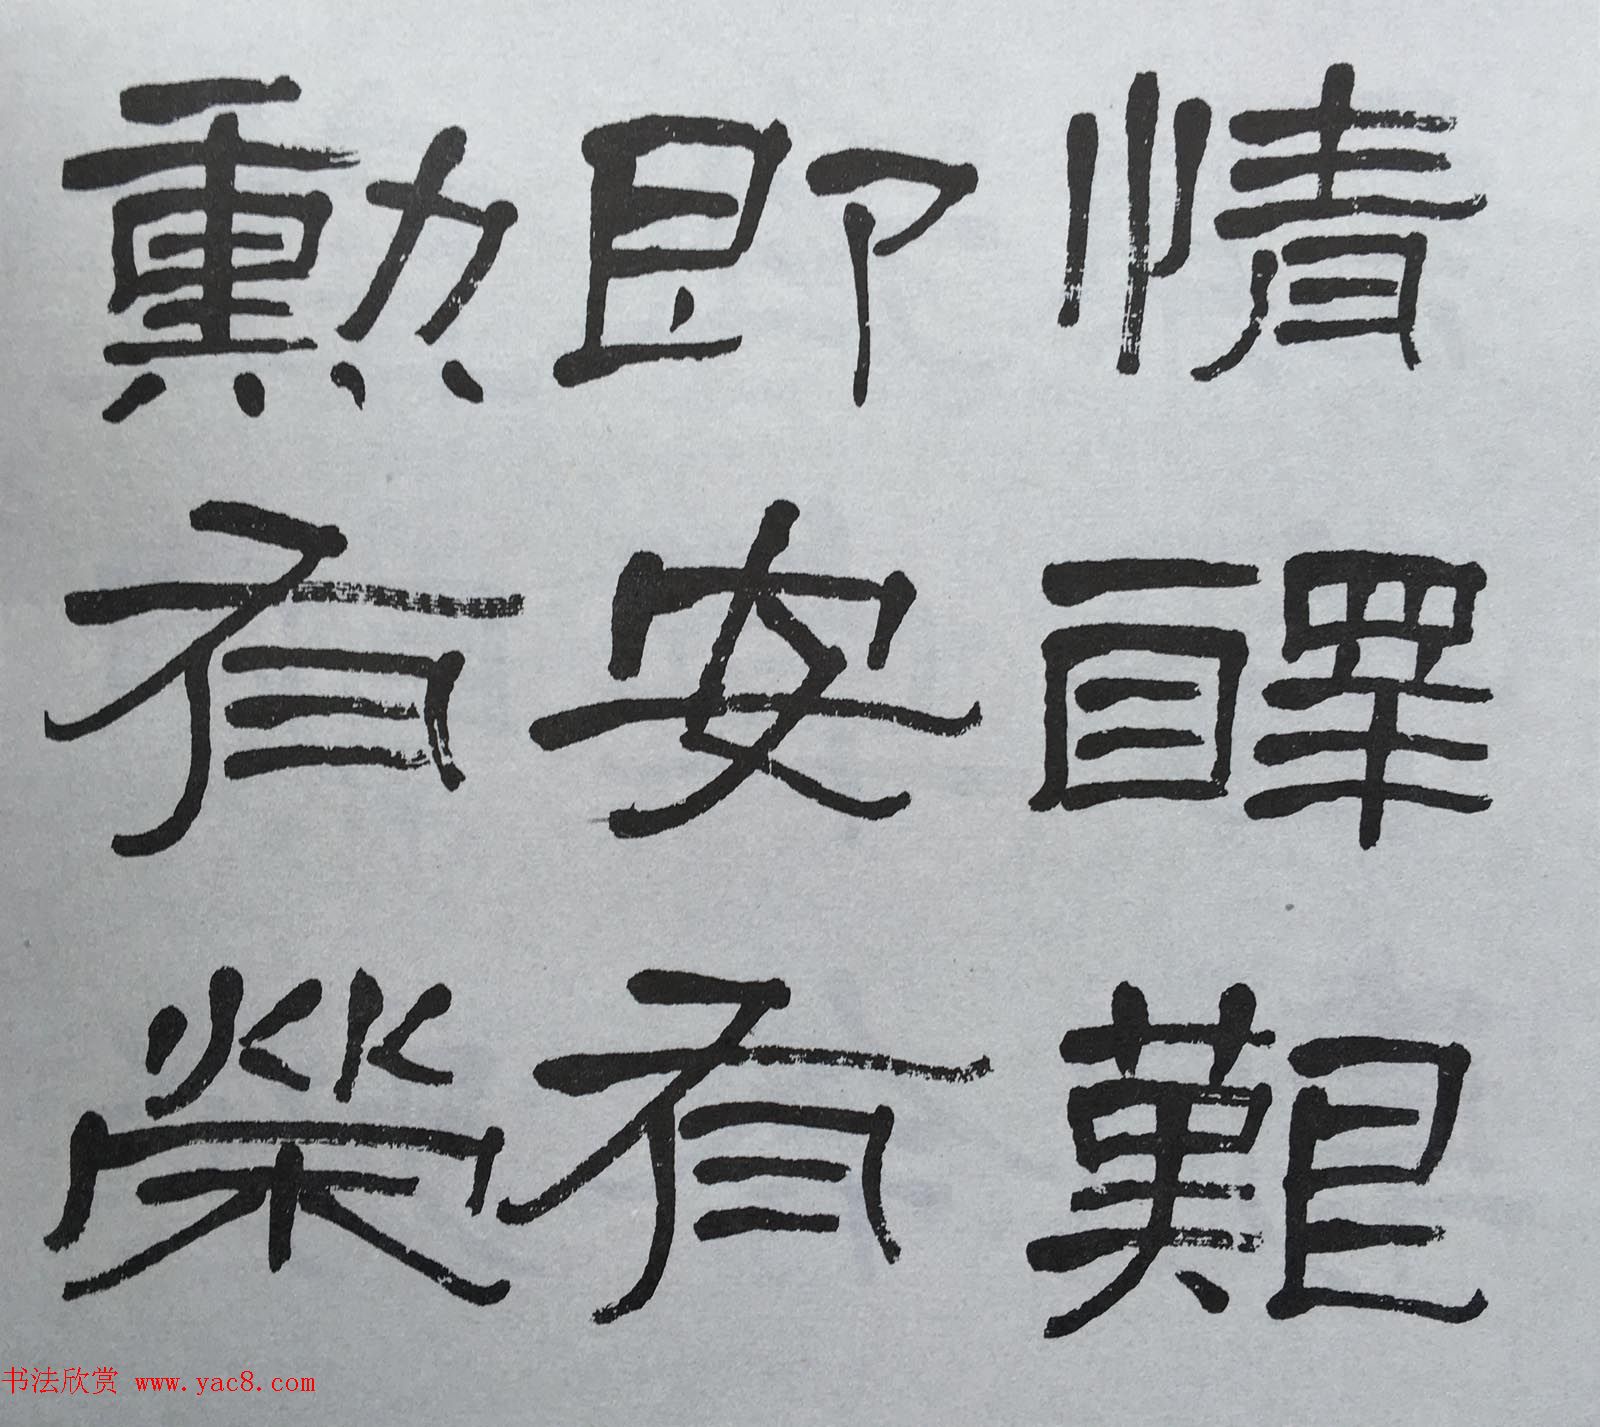 情醳艱
即安有
勳有榮
书法欣赏 www.yac8.com